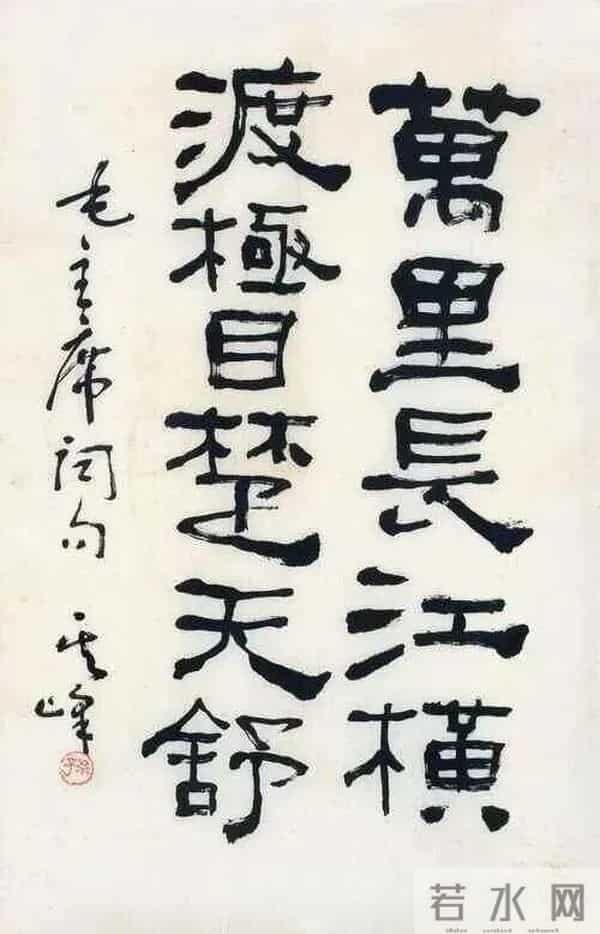 萬里長江橫
渡極目楚天舒
毛主席詞句 其峰
若水网